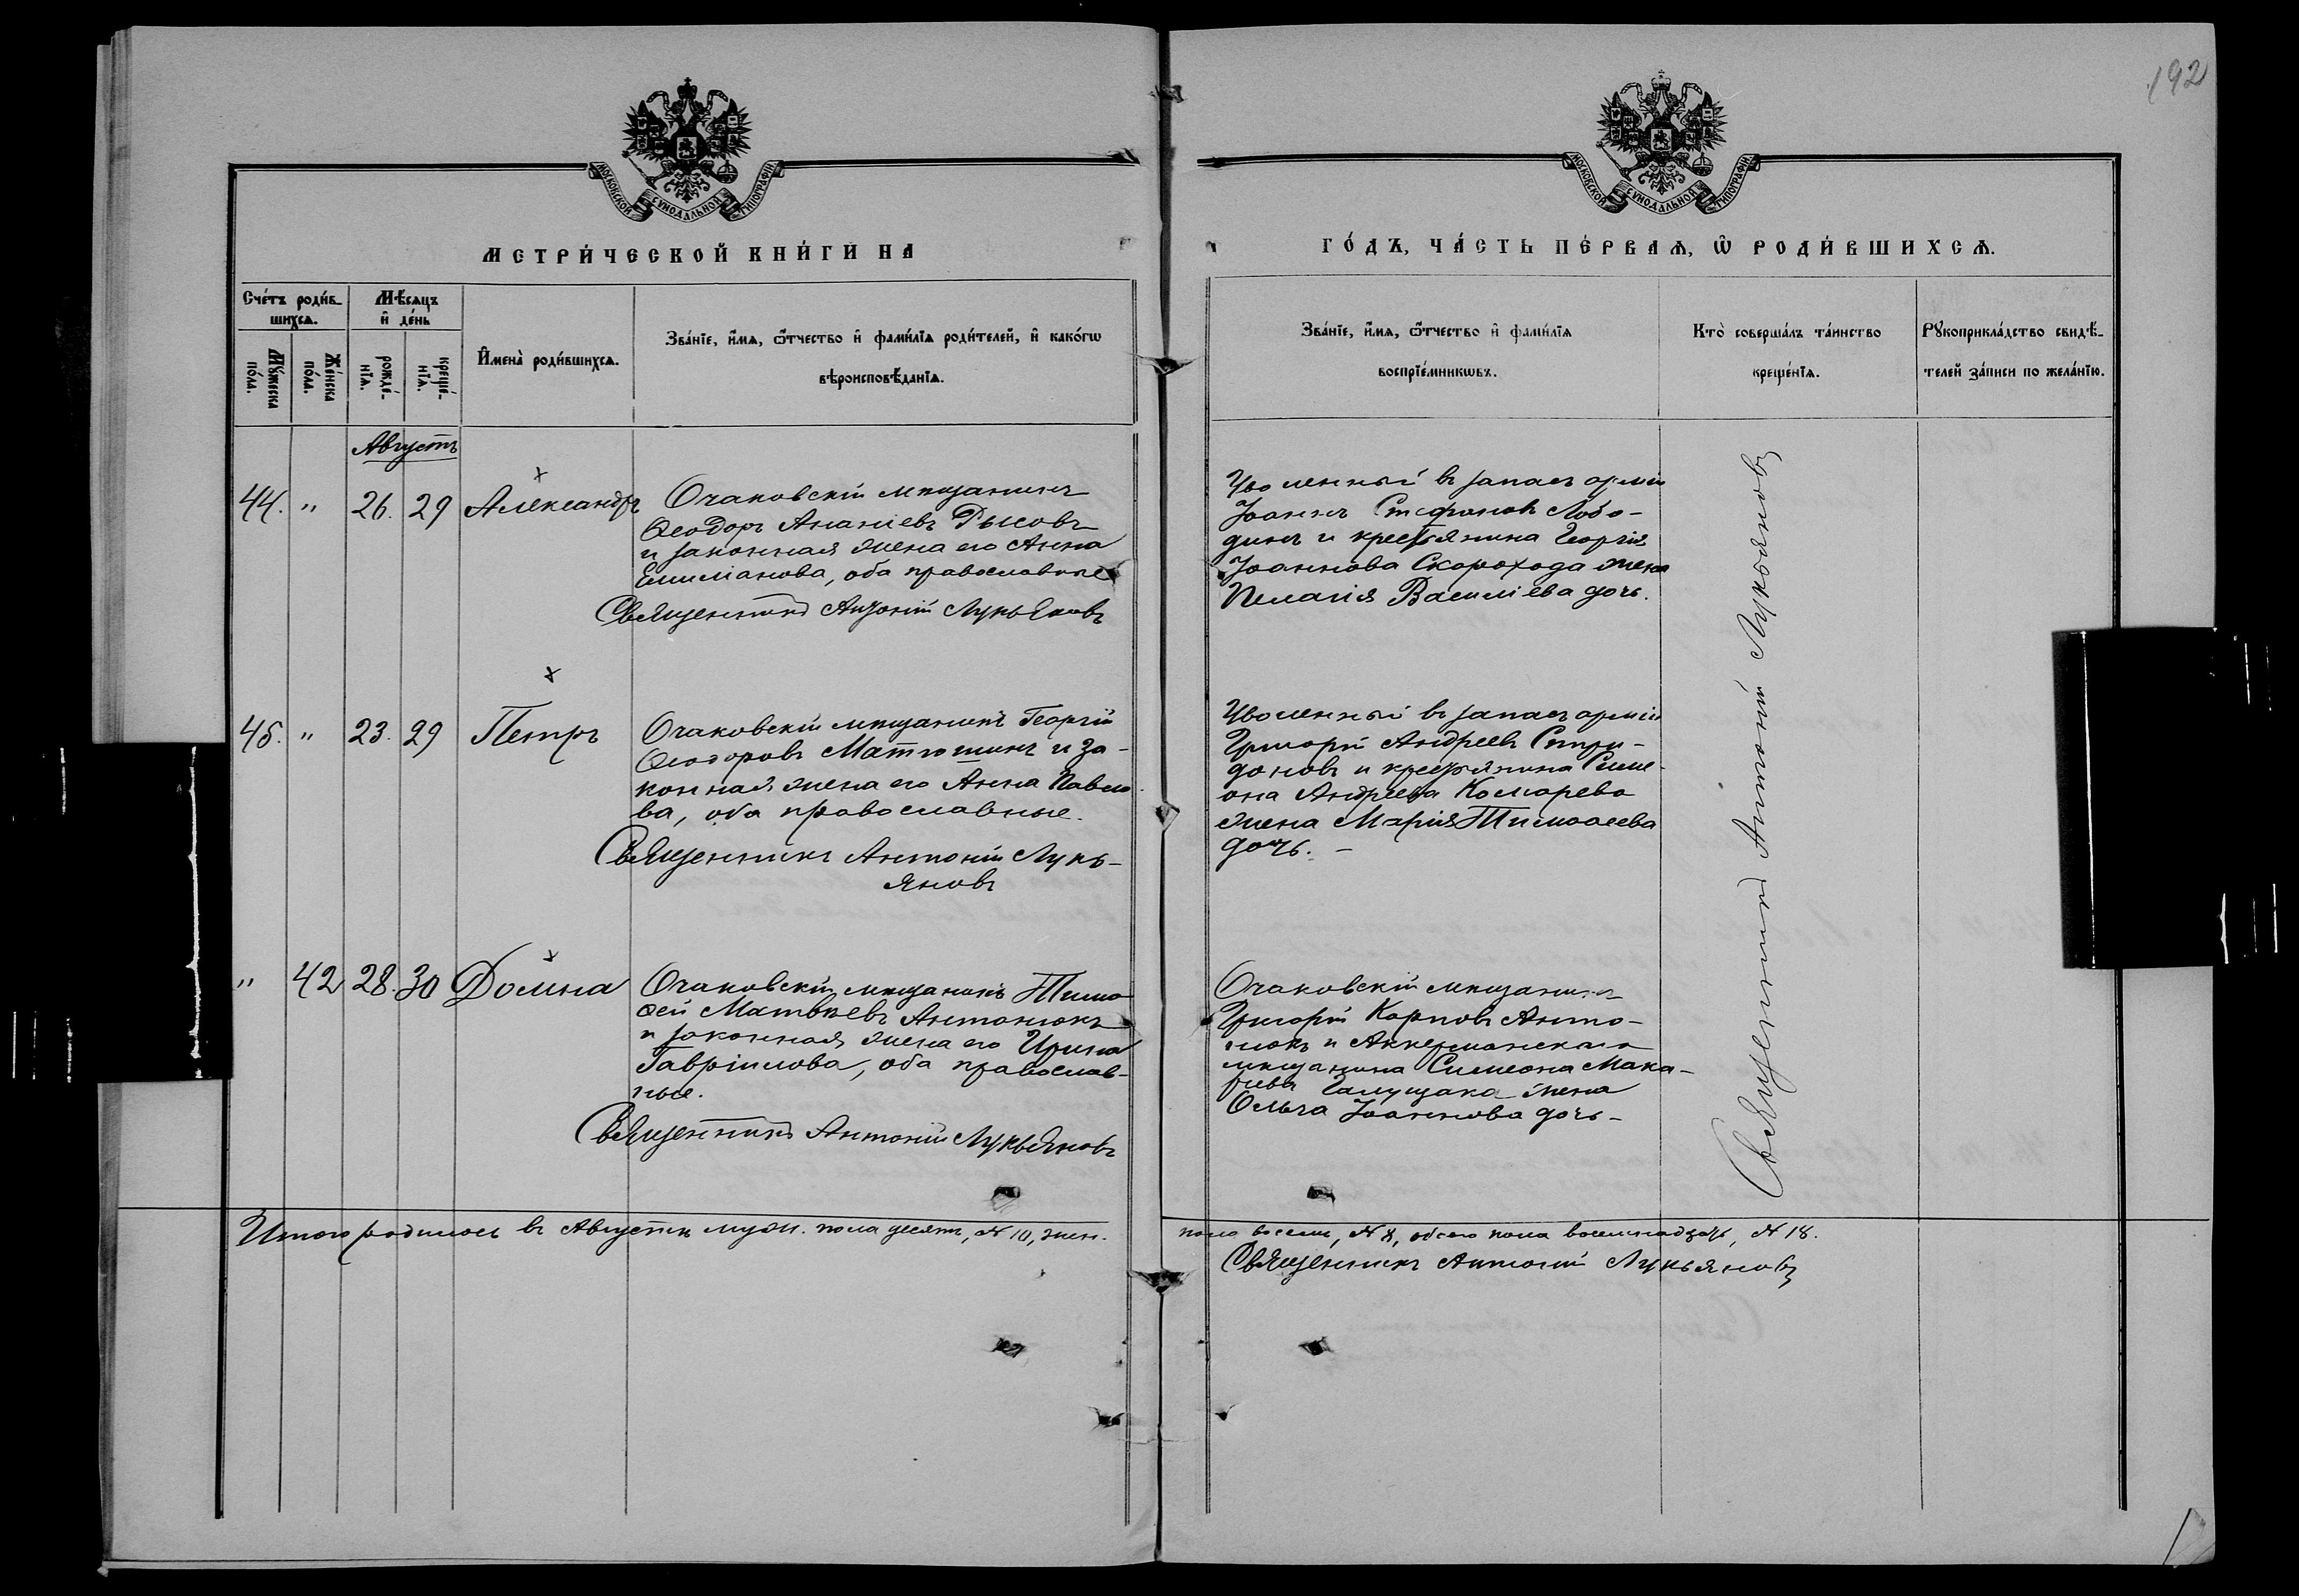 192
МОСКОВСКОЙ СУНОДАЛЬНОЙ ТИПОГРАФІИ
МОСКОВСКОЙ СУНОДАЛЬНОЙ ТИПОГРАФІИ
МЕТРИ́ЧЕСКОЙ КНИ́ГИ НА
ГО́ДЪ, ЧА́СТЬ ПЕ́РВАЯ, Ѡ РОДИ́ВШИХСЯ.
Сче́тъ роди́в-
шихся.
Мѣ́сяцъ
и҆ де́нь
Мꙋ́жеска
по́ла.
Же́нска
по́ла.
рожде́-
нїя.
креще́-
нїя.
И҆мена̀ роди́вшихся.
Зва́нїе, и҆́мя, ѻ҆́тчество и҆ фами́лїя роди́телей, и҆ како́гѡ
вѣроисповѣ́данїя.
Зва́нїе, и҆́мя, ѻ҆́тчество и҆ фами́лїя
воспрїе́мникѡвъ.
Кто̀ соверша́лъ та́инство
креще́нїя.
Рꙋкоприкла́дство свидѣ́-
телей за́писи по жела́нїю.
Августъ
44. " 26. 29 Александръ
Очаковскій мѣщанинъ
Ѳеодоръ Ананіевъ Рысовъ
и законная жена его Анна
Емиліанова, оба православные
Священникъ Антоній Лукьяновъ
Уволенный въ запасъ арміи
Іоаннъ Стефановъ Лобо-
динъ и крестьянина Георгія
Іоаннова Скорохода жена
Пелагія Василіева дочь.
45. " 23. 29 Петръ
Очаковскій мѣщанинъ Георгій
Ѳеодоровъ Матюшинъ и за-
конная жена его Анна Павло-
ва, оба православные.
Священникъ Антоній Лукь-
яновъ
Уволенный въ запасъ арміи
Григорій Андреевъ Спири-
доновъ и крестьянина Симе-
она Андреева Комарева
жена Марія Тимоѳеева
дочь. -
" 42 28. 30 Домна
Очаковскій мѣщанинъ Тимо-
ѳей Матвѣевъ Антонюкъ
и законная жена его Ирина
Гавріилова, оба православ-
ные.
Священникъ Антоній Лукьяновъ
Очаковскій мѣщанинъ
Григорій Карповъ Анто-
нюкъ и Аккерманскаго
мѣщанина Симеона Мака-
рієва Галущака жена
Ольга Іоаннова дочь -
Священникъ Антоній Лукьяновъ
Итого родилось въ Августѣ муж. пола десять, № 10, жен.
пола восемь, № 8, обоего пола восемнадцать, № 18.
Священникъ Антоній Лукьяновъ